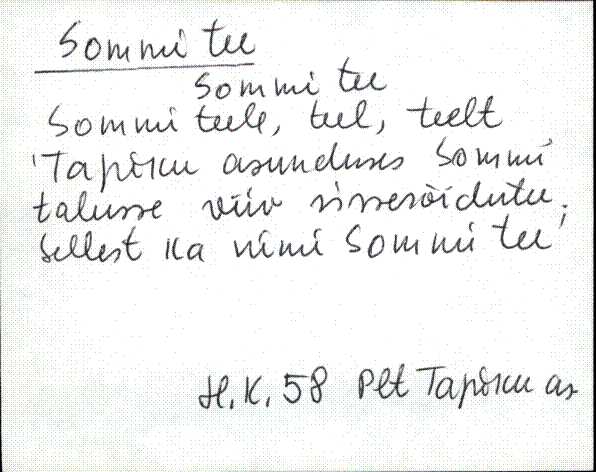 Sommi tee
Sommi tee
Sommi teele, teel, teelt
'Tapiku asunduses Sommi
talusse viiv sissesõidutee.
Sellest ka nimi Sommi tee'
H.K. 58 Plt Tapiku as